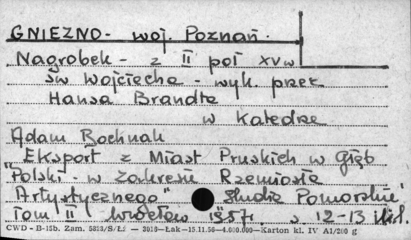 GNIEZNO - woj. Poznań.
Nagrobek - z II poł XVw
Św Wojciecha - wyk. przez
Hansa Brandta
w Katedrze
Adam Bochnak
"Eksport z Miast Pruskich w głąb
Polski - w Zakresie Rzemiosła
Artystycznego" Studia Pomorskie
Tom II Wrocław 1957r. s 12-13
CWD - B-15b. Zam. 5823/S/Łż — 3018—Łak—15.11.50—4.000.000—Karton kl. IV A1/200 g